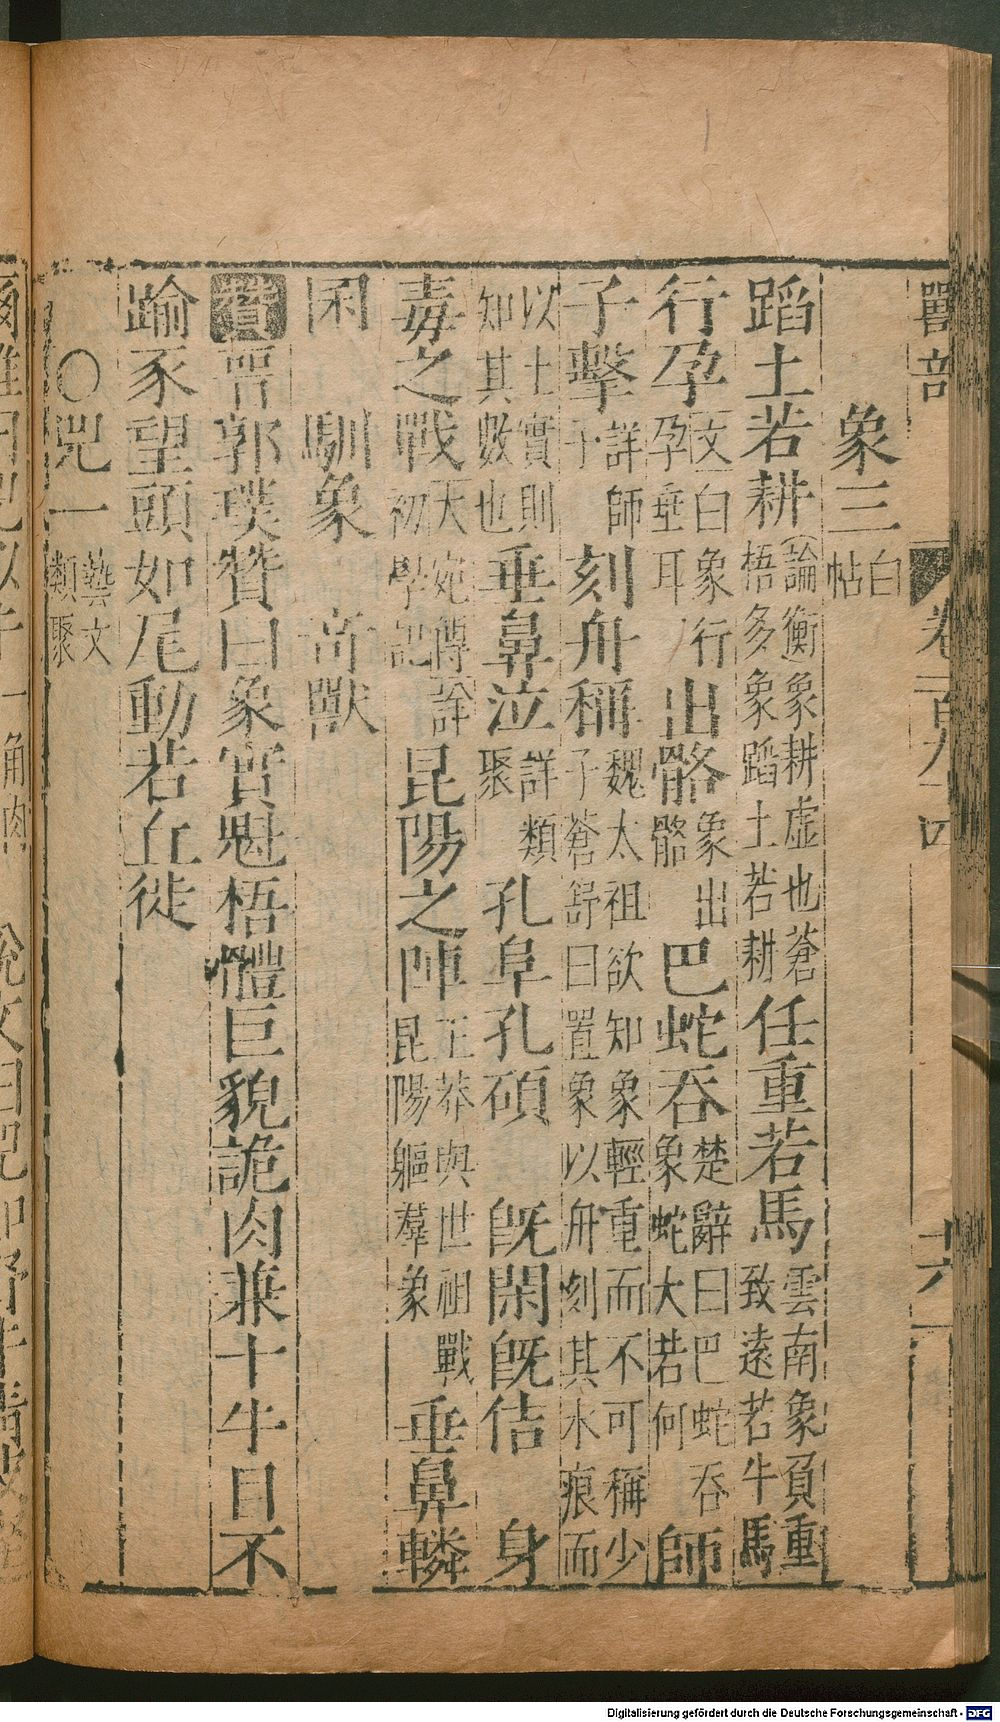 獸部 卷一百九十四 六
象三 白帖
蹈土若耕 論衡象耕虛也蒼梧多象蹈土若耕 任重若馬 雲南象負重致遠若牛馬
行孕 文白象行孕垂耳 出骼 象出骼 巴蛇吞 楚辭曰巴蛇吞象蛇大若何 師
子擊 詳師子 刻舟稱 魏太祖欲知象輕重而不可稱少子蒼舒曰置象以舟刻其水痕而
以土實則知其數也 垂鼻泣 詳類聚 孔阜孔碩 旣閑旣佶 身
毒之戰 大宛傳詳初學記 昆陽之陣 王莽與世祖戰昆陽驅羣象 垂鼻轔
囷 馴象 奇獸
贊 晉郭璞贊曰象實魁梧體巨貌詭肉兼十牛目不
踰豕望頭如尾動若丘徙
○兕一 藝文類聚
Digitalisierung gefördert durch die Deutsche Forschungsgemeinschaft - DFG